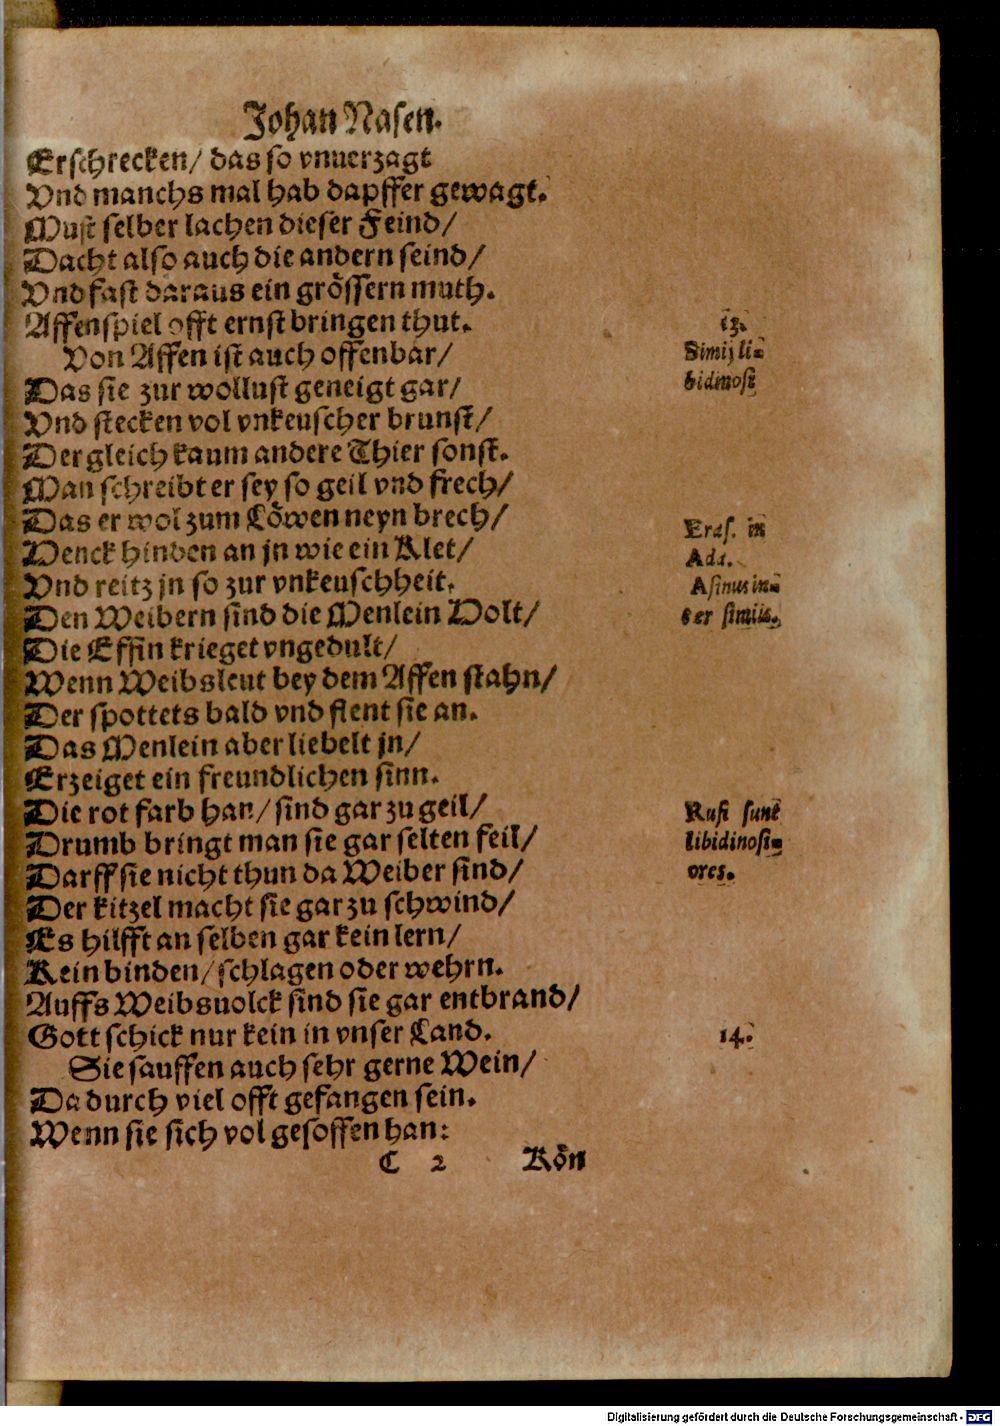 Johan Nasen.
Erschrecken/ das so vnuerzagt
Vnd manchs mal hab dapffer gewagt.
Must selber lachen dieser Feind/
Dacht also auch die andern seind/
Vnd fast daraus ein grössern muth.
Affenspiel offt ernst bringen thut.
13.
Von Affen ist auch offenbar/
Simij li-
Das sie zur wollust geneigt gar/
bidinosi
Vnd stecken vol vnkeuscher brunst/
Der gleich kaum andere Thier sonst.
Man schreibt er sey so geil vnd frech/
Das er wol zum Löwen neyn brech/
Eras. in
Henck hinden an jn wie ein Klet/
Ada.
Vnd reitz jn so zur vnkeuschheit.
Asinus in-
Den Weibern sind die Menlein Holt/
ter simias.
Die Effin krieget vngedult/
Wenn Weibsleut bey dem Affen stahn/
Der spottets bald vnd flent sie an.
Das Menlein aber liebelt jn/
Erzeiget ein freundlichen sinn.
Die rot farb han/ sind gar zu geil/
Rufi sunt
Drumb bringt man sie gar selten feil/
libidinosi-
Darff sie nicht thun da Weiber sind/
ores.
Der kitzel macht sie gar zu schwind/
Es hilfft an selben gar kein lern/
Kein binden/ schlagen oder wehrn.
Auffs Weibsuolck sind sie gar entbrand/
Gott schick nur kein in vnser Land.
14.
Sie sauffen auch sehr gerne Wein/
Da durch viel offt gefangen sein.
Wenn sie sich vol gesoffen han:
C 2 Kön
Digitalisierung gefördert durch die Deutsche Forschungsgemeinschaft - DFG